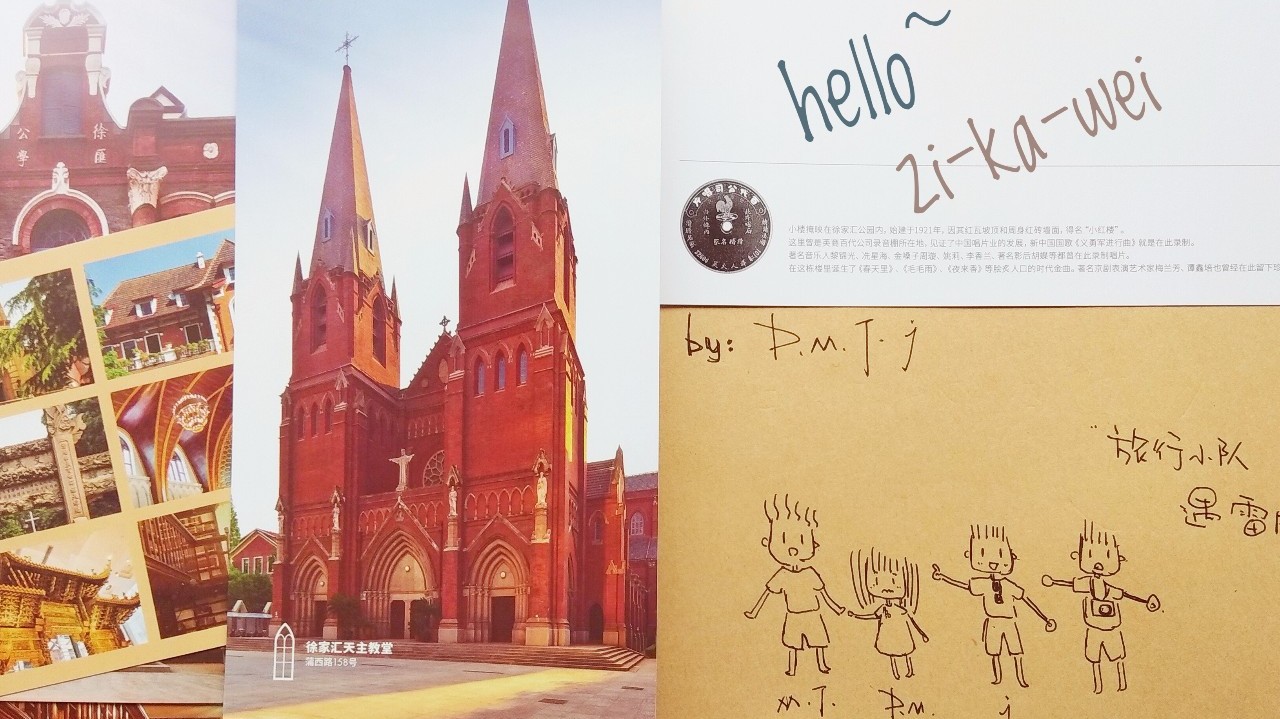 徐
匯
公
學
徐家汇天主教堂
蒲西路158号
hello~
zi-ka-wei
小楼掩映在徐家汇公园内，始建于1921年，因其红瓦坡顶和周身红砖墙面，得名“小红楼”。
这里曾是英商百代公司录音棚所在地，见证了中国唱片业的发展，新中国国歌《义勇军进行曲》就是在此录制。
著名音乐人黎锦光、冼星海、金嗓子周璇、姚莉、李香兰、著名影后胡蝶等都曾在此录制唱片。
在这栋楼里诞生了《春天里》、《毛毛雨》、《夜来香》等脍炙人口的时代金曲。著名京剧表演艺术家梅兰芳、谭鑫培也曾经在此留下
by: D.M. T. j
"旅行小队
遇雷
m.T.
D.M.
j